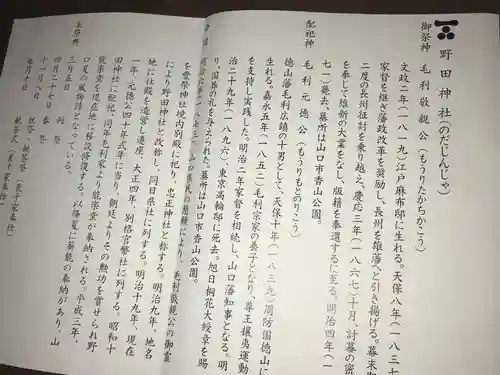 野田神社(のだじんじゃ)
御祭神 毛利敬親公(もうりたかちかこう)
文政二年(一八一九)江戸麻布邸に生れる。天保八年(一八三七
家督を継ぎ藩政改革を奨励し、長州を雄藩へと引き揚げる。幕末
二度の長州征討を乗り越え、慶応三年(一八六七)十月、討幕の密
を奉じて維新の大業をなし、版籍を奉還するに至る。明治四年(一
七一)薨去、墓所は山口市香山公園。
配祀神 毛利元徳公(もうりもとのりこう)
徳山藩毛利広鎮の十男として、天保十年(一八三九)周防国徳山に
生れる。嘉永五年(一八五二)毛利宗家の養子となり、尊王攘夷運動
を支持し実践した。明治二年家督を相続し、山口藩知事となる。明
治二十九年(一八九六)、東京高輪邸に死去。旭日桐花大綬章を賜
り、国葬の礼を与えられた。墓所は山口市香山公園。
山口県民の懇願により、毛利敬親公の御霊
を豊栄神社境内別殿に祀り、忠正神社と称する。明治九年、地名
により野田神社と改称し、同日県社に列する。明治十九年、現在
地に社殿を造営し遷座、大正四年、別格官幣社に列する。昭和十
一年、元徳公四十年式年に当り、朝廷よりその勲功を賞せられ野
田神社に配祀、同年毛利家より能楽堂が奉納される。平成三年、
能楽堂を現在地に移設修復する。以降夏に薪能の奉納があり、山
口夏の風物詩となっている。
主祭典
三月五日 例祭
四月二十七日 春祭
十一月八日 秋祭・献茶祭(表千家奉仕)
毎月十日 献茶式(表千家奉仕)